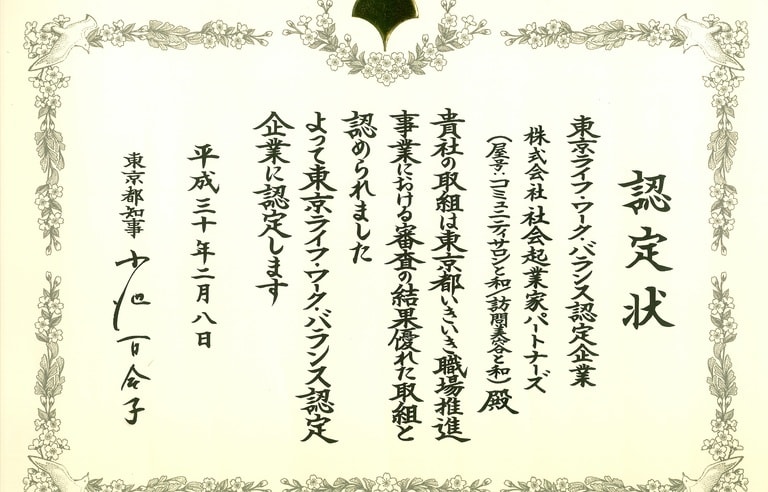 認定状
東京ライフ・ワーク・バランス認定企業
株式会社 社会起業家パートナーズ
(屋号・コミュニティサロンと和(訪問美容と和)殿
貴社の取組は東京都いきいき職場推進
事業における審査の結果優れた取組と
認められました
よって東京ライフ・ワーク・バランス認定
企業に認定します
平成三十年二月八日
東京都知事 小池百合子